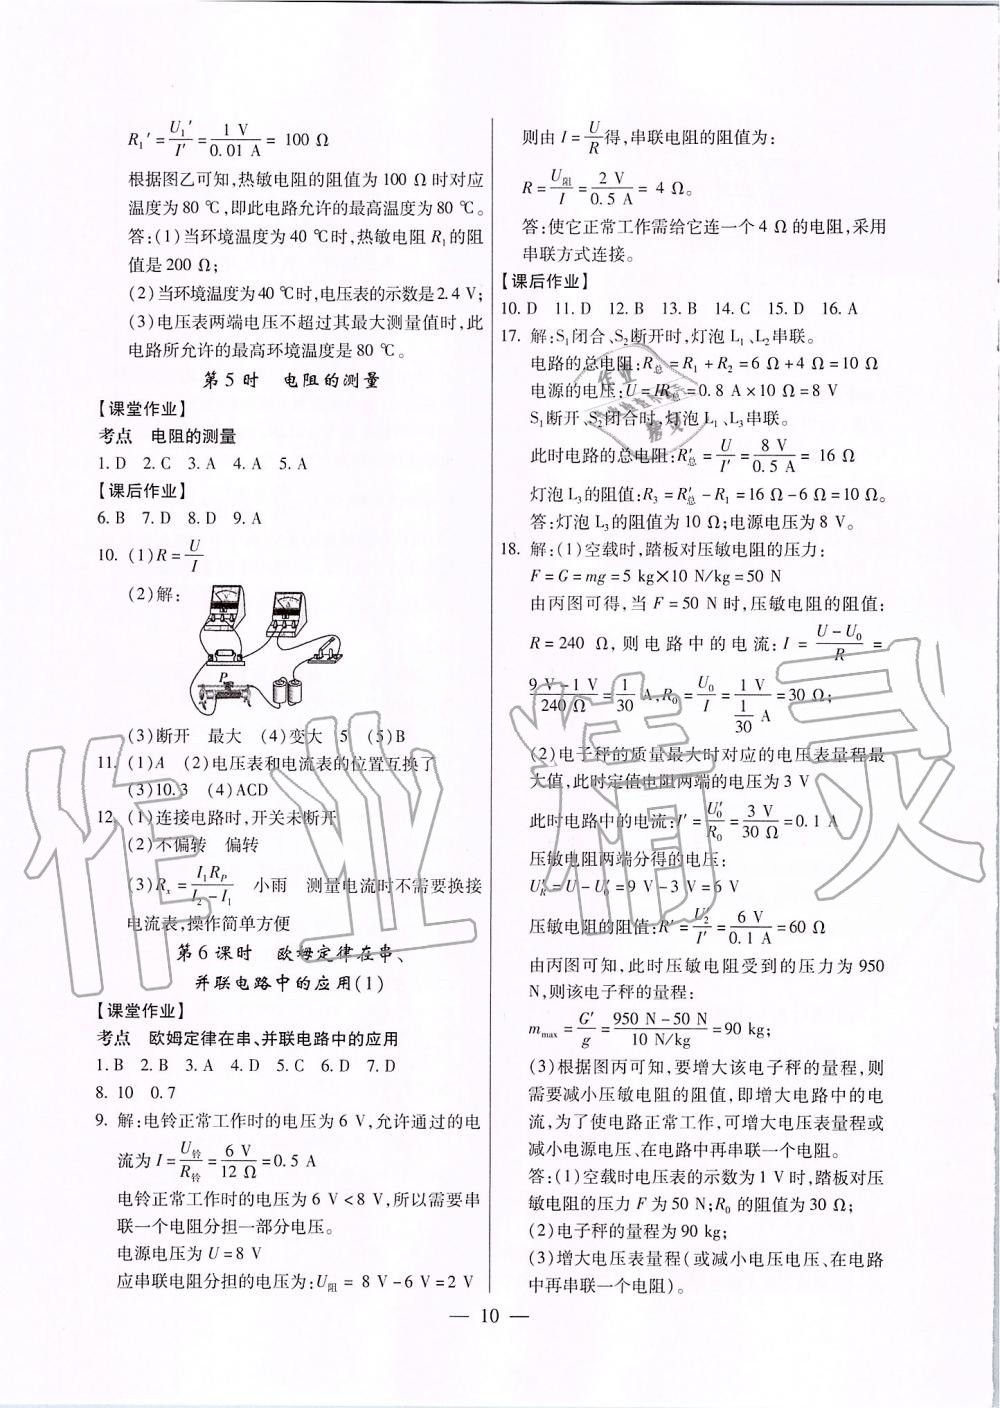 R₁′=U₁′/I′=1 V/0.01 A= 100 Ω
根据图乙可知,热敏电阻的阻值为 100 Ω 时对应
温度为 80 ℃,即此电路允许的最高温度为 80 ℃。
答:(1)当环境温度为 40 ℃时,热敏电阻 R₁的阻
值是 200 Ω;
(2)当环境温度为 40 ℃时,电压表的示数是 2.4 V;
(3)电压表两端电压不超过其最大测量值时,此
电路所允许的最高环境温度是 80 ℃。
第 5 时 电阻的测量
【课堂作业】
考点 电阻的测量
1. D 2. C 3. A 4. A 5. A
【课后作业】
6. B 7. D 8. D 9. A
10. (1)R=U/I
(2)解:
P
(3)断开 最大 (4)变大 5 (5)B
11. (1)A (2)电压表和电流表的位置互换了
(3)10.3 (4)ACD
12. (1)连接电路时,开关未断开
(2)不偏转 偏转
(3)Rₓ=I₁R_P/(I₂-I₁) 小雨 测量电流时不需要换接
电流表,操作简单方便
第 6 课时 欧姆定律在串、
并联电路中的应用(1)
【课堂作业】
考点 欧姆定律在串、并联电路中的应用
1. B 2. B 3. A 4. D 5. C 6. D 7. D
8. 10 0.7
9. 解:电铃正常工作时的电压为 6 V,允许通过的电
流为 I=U铃/R铃=6 V/12 Ω=0.5 A
电铃正常工作时的电压为 6 V<8 V,所以需要串
联一个电阻分担一部分电压。
电源电压为 U=8 V
应串联电阻分担的电压为:U阻= 8 V-6 V=2 V
则由 I=U/R得,串联电阻的阻值为:
R=U阻/I=2 V/0.5 A= 4 Ω。
答:使它正常工作需给它连一个 4 Ω 的电阻,采用
串联方式连接。
【课后作业】
10. D 11. D 12. B 13. B 14. C 15. D 16. A
17. 解:S₁闭合、S₂断开时,灯泡 L₁、L₂串联。
电路的总电阻:R总=R₁+R₂=6 Ω+4 Ω=10 Ω
电源的电压:U=IR总=0.8 A×10 Ω=8 V
S₁断开、S₂闭合时,灯泡 L₁、L₃串联。
此时电路的总电阻:R′总=U/I′=8 V/0.5 A= 16 Ω
灯泡 L₃的阻值:R₃=R′总-R₁=16 Ω-6 Ω=10 Ω。
答:灯泡 L₃的阻值为 10 Ω;电源电压为 8 V。
18. 解:(1)空载时,踏板对压敏电阻的压力:
F=G=mg=5 kg×10 N/kg=50 N
由丙图可得,当 F=50 N 时,压敏电阻的阻值:
R=240 Ω,则电路中的电流:I=(U-U₀)/R=
(9 V-1 V)/240 Ω=1/30 A,R₀=U₀/I=1 V/(1/30 A)=30 Ω;
(2)电子秤的质量最大时对应的电压表量程最
大值,此时定值电阻两端的电压为 3 V
此时电路中的电流:I′=U′₀/R₀=3 V/30 Ω=0.1 A
压敏电阻两端分得的电压:
U′_R=U-U′₀=9 V-3 V=6 V
压敏电阻的阻值:R′=U′₂/I′=6 V/0.1 A=60 Ω
由丙图可知,此时压敏电阻受到的压力为 950
N,则该电子秤的量程:
m_max=G′/g=(950 N-50 N)/(10 N/kg)=90 kg;
(3)根据图丙可知,要增大该电子秤的量程,则
需要减小压敏电阻的阻值,即增大电路中的电
流,为了使电路正常工作,可增大电压表量程或
减小电源电压、在电路中再串联一个电阻。
答:(1)空载时电压表的示数为 1 V 时,踏板对压
敏电阻的压力 F 为 50 N;R₀ 的阻值为 30 Ω;
(2)电子秤的量程为 90 kg;
(3)增大电压表量程(或减小电压电压、在电路
中再串联一个电阻)。
— 10 —
作业精灵